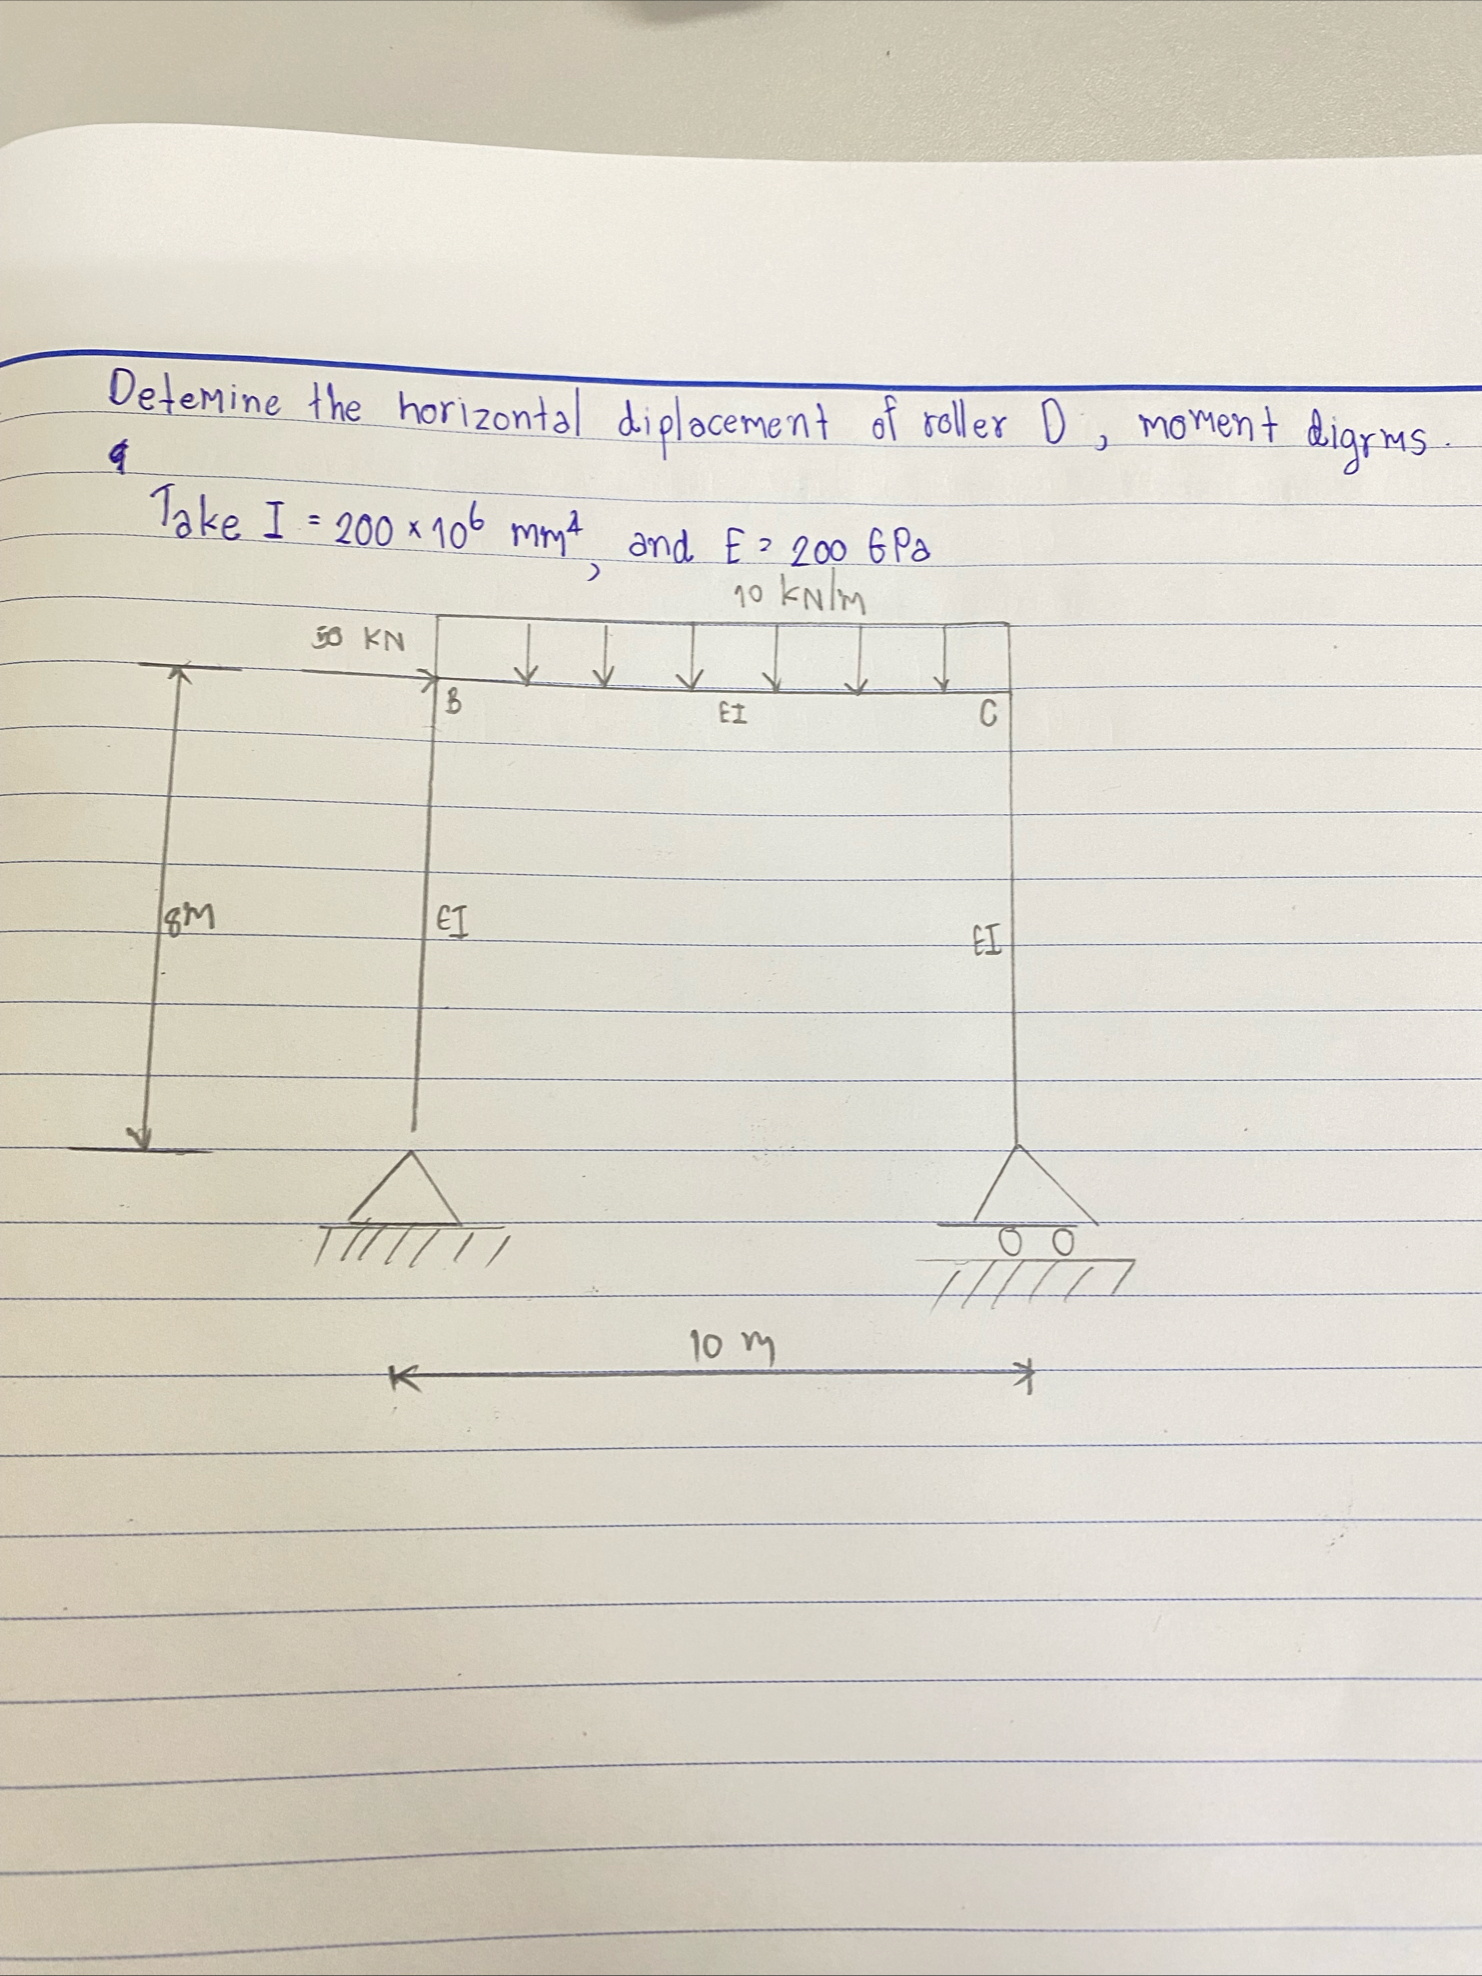 Detemine the horizontal diplacement of roller D, moment digrms.
Take I = 200 × 10⁶ mm⁴, and E = 200 GPa
10 kN/m
50 KN
B
EI
C
8M
EI
EI
10 m